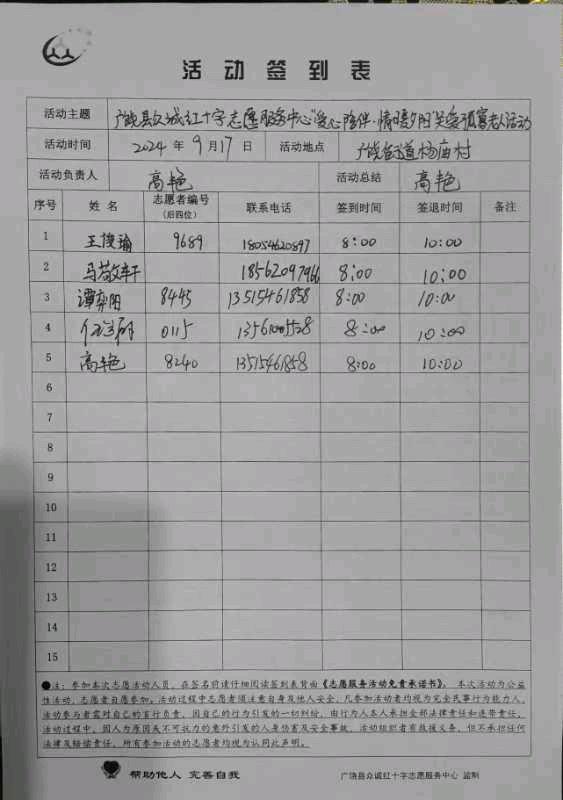 活动签到表
活动主题 广饶县众诚红十字志愿服务中心"爱心陪伴·情暖夕阳"关爱孤寡老人活动
活动时间 2024 年 9 月 17 日 活动地点 广饶街道杨庙村
活动负责人 高艳 活动总结 高艳
序号 姓 名 志愿者编号 (后四位) 联系电话 签到时间 签退时间 备注
1 王俊瑜 9689 18054620897 8:00 10:00
2 马敬轩 18562097966 8:00 10:00
3 谭奕阳 8445 13515461858 8:00 10:00
4 0115 8:00 10:00
5 高艳 8240 13515461858 8:00 10:00
6
7
8
9
10
11
12
13
14
15
●注：参加本次志愿活动人员，在签名前请仔细阅读签到表背面《志愿服务活动免责承诺书》。本次活动为公益
性活动，志愿者自愿参加。活动过程中志愿者须注意自身及他人安全，凡参加活动者均视为完全民事行为能力人，
活动参与者需对自己的言行负责，因自己的行为引发的一切纠纷，由行为人本人承担全部法律责任和连带责任。
活动过程中，因人为原因或不可抗力的意外引发的人身伤害及安全事故，活动组织者有救援义务，但不承担任何
法律及赔偿责任，所有参加活动的志愿者均视为认同此声明。
帮助他人 完善自我 广饶县众诚红十字志愿服务中心 监制